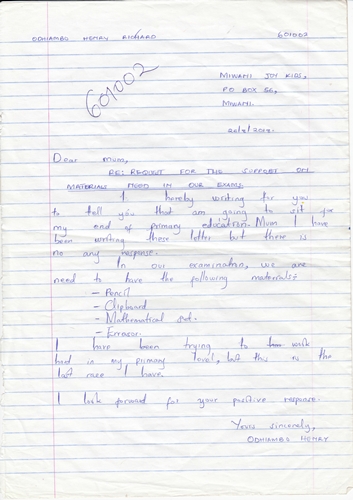 ODHIAMBO HENRY RICHARD 601002
601002
MIWANI JOY KIDS,
PO BOX 56,
MIWANI.
Dear Mum,
RE: REQUEST FOR THE SUPPORT ON
MATERIALS NEED IN OUR EXAMS
I hereby writing for you
to tell you that am going to sit for
my end of primary education. Mum I have
been writing these letter but there is
no any response.
In our examination, we are
need to have the following materials:
- Pencil
- Clipboard
- Mathematical set.
- Errasor.
I have been trying to work
hard in my primary level, but this is the
last race I have.
I look forward for your positive response.
Yours sincerely,
ODHIAMBO HENRY